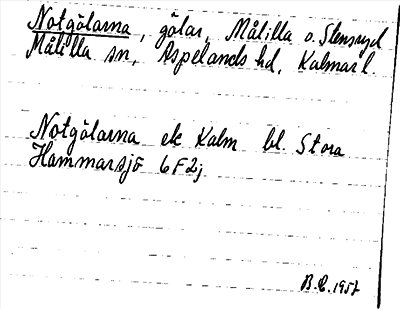 Notgölarna, gölar, Målilla o. Stensryd
Målilla sn, Aspelands hd, Kalmar l.
Notgölarna ek Kalm bl. Stora
Hammarsjö 6F2j
B.E. 1957